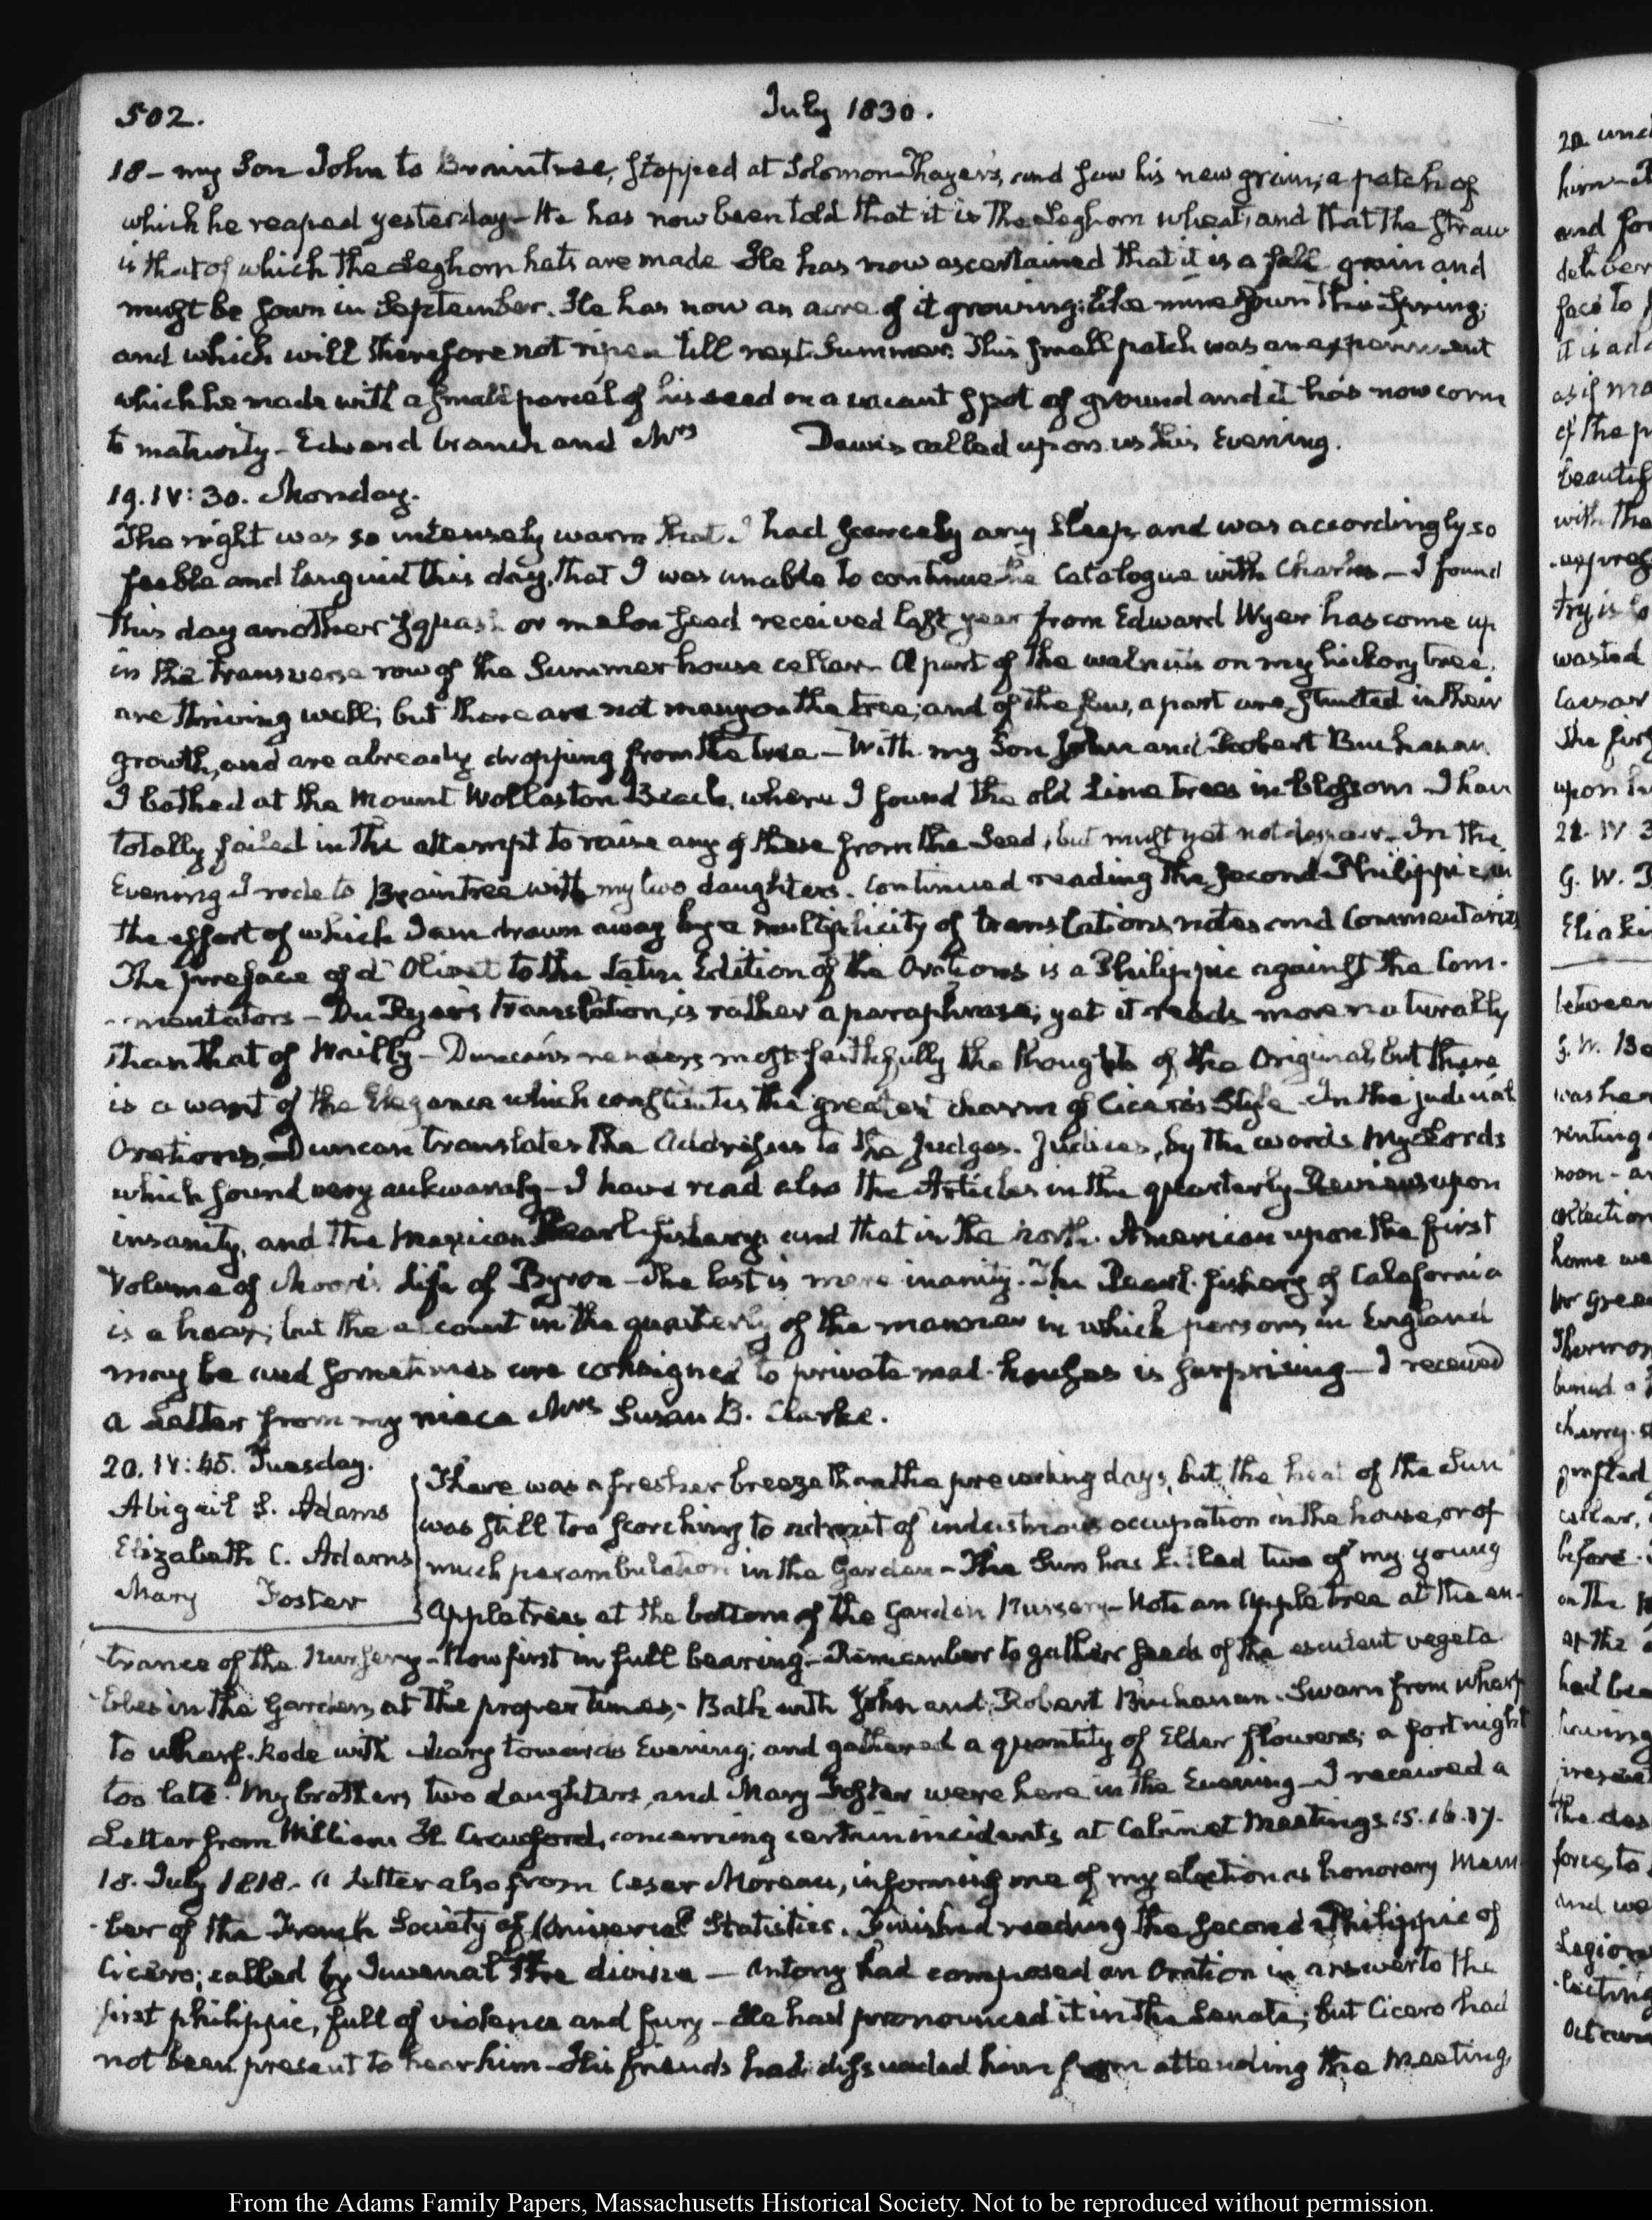 502.
July 1830.
18 - my Son John to Braintree, stopped at Solomon Thayer's, and saw his new grain; a patch of
which he reaped yesterday - He has now been told that it is the Leghorn wheat, and that the straw
is that of which the Leghorn hats are made He has now ascertained that it is a fall grain and
must be sown in September. He has now an acre of it growing; like mine sown this Spring;
and which will therefore not ripen till next Summer. This small patch was an experiment
which he made with a small parcel of his seed on a vacant spot of ground and it has now come
to maturity - Edward branch and Mrs Dawis called upon us this Evening.
19. IV: 30. Monday.
The night was so intensely warm that I had scarcely any sleep and was accordingly so
feeble and languid this day, that I was unable to continue the Catalogue with Charles - I found
this day another squash or melon seed received last year from Edward Wyer has come up
in the transverse row of the Summer house cellar - A part of the walnuts on my hickory tree.
are thriving well; but there are not many on the tree; and of the few, a part are stunted in their
growth, and are already dropping from the tree - With my Son John and Robert Buchanan
I bathed at the Mount Wollaston Beach, where I found the old Lime trees in blossom - I have
totally failed in the attempt to raise any of these from the Seed, but must yet not despair - In the
Evening I rode to Braintree with my two daughters. Continued reading the second Philippic, in
the effort of which I am drawn away by a multiplicity of translations, notes and Commentaries
The preface of d'Olivet to the Latin Edition of the Orations is a Philippic against the Com-
-mentators - Du Ryer's translation, is rather a paraphrase; yet it reads more naturally
than that of Wailly - Duncan's renders most faithfully the thoughts of the Original, but there
is a want of the Elegance which constitutes the greatest charm of Cicero's Style - In the judicial
Orations, Duncan translates the Addresses to the Judges. Judices, by the words My Lords
which sound very aukwardly - I have read also the Articles in the quarterly Review upon
insanity, and the Mexican Pearl-fishery: and that in the North American upon the first
Volume of Moore's Life of Byron - The last is mere inanity. The Pearl-fishery of California
is a hoax; but the account in the quarterly of the manner in which persons in England
may be and sometimes are consigned to private mad-houses is surprising - I received
a Letter from my niece Mrs Susan B. Clarke.
20. IV: 45. Tuesday.
Abigail S. Adams
Elizabeth C. Adams
Mary Foster
There was a fresher breeze than the preceding days, but the heat of the Sun
was still too scorching to admit of industrious occupation in the house, or of
much perambulation in the Garden - The Sun has killed two of my young
Appletrees at the bottom of the Garden Nursery - Note an Appletree at the en-
trance of the Nursery - Now first in full bearing - Remember to gather seeds of the esculent vegeta-
-bles in the Garden, at the proper times. - Bath with John and Robert Buchanan. Swam from wharf
to wharf. Rode with Mary towards Evening; and gathered a quantity of Elder flowers; a fortnight
too late. My brother's two daughters, and Mary Foster were here in the Evening - I received a
Letter from William H. Crawford, concerning certain incidents at Cabinet Meetings 15. 16. 17.
18. July 1818 - A Letter also from Cesar Moreau, informing me of my election as honorary Mem-
-ber of the French Society of Universal Statistics. Finished reading the second Philippic of
Cicero; called by Juvenal the divine - Antony had composed an Oration in answer to the
first philippic, full of violence and fury - He had pronounced it in the Senate; but Cicero had
not been present to hear him - His friends had dissuaded him from attending the Meeting,
From the Adams Family Papers, Massachusetts Historical Society. Not to be reproduced without permission.